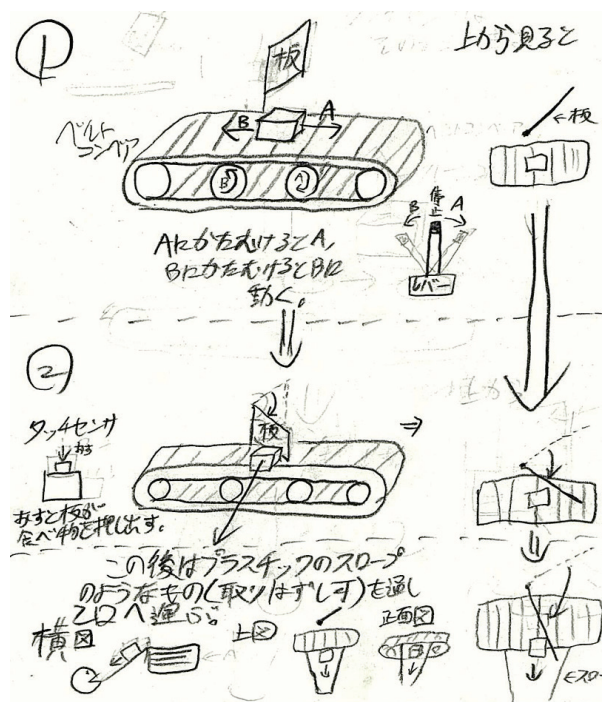 ①
上から見ると
板
←板
ベルト
コンベア
B
A
B
A
B 停止 A
レバー
Aにかたむけると A,
Bにかたむけると Bに
動く。
②
タッチセンサ
おす
板
おすと板が
食べ物を押し出す。
この後はプラスチックのスロープ
のようなもの(取りはずし可)を通し
て口へ運ぶ。
横図
上図
正面図